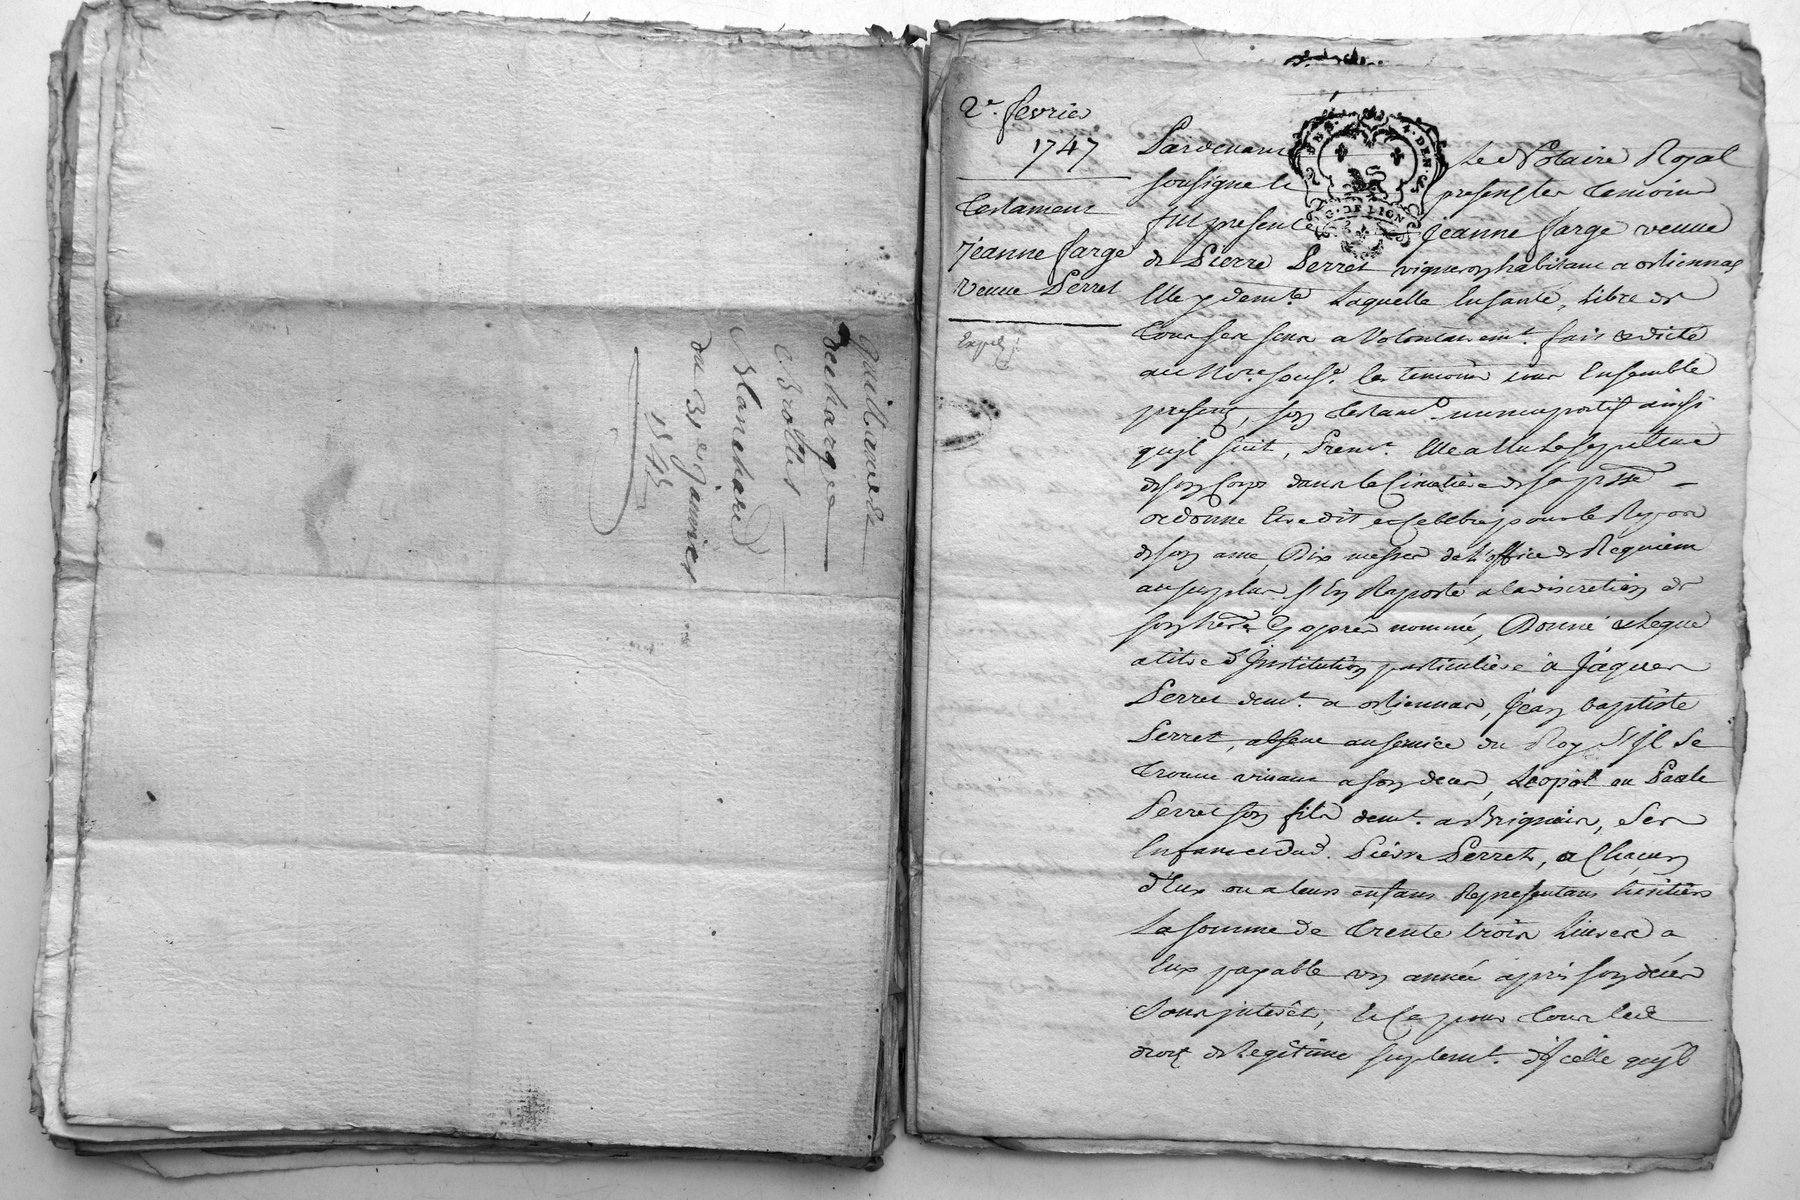 quittance et
decharge
Brottet
Blanchard
du 31e janvier
1745
2e. fevrier
1747
Testament
jeanne farge
veuve Perret
Expé
Pardevant Le Notaire Royal
sousigné et presens les temoins
fut presente jeanne farge veuve
de Pierre Perret vigneron habitant a orliennas
Elle y demte. Laquelle En santé, Libre de
tous ses sens a Volontairemt. fait et dicté
au Nore. sousé. les temoins tous Ensemble
presens, son testamt. nuncupatif ainsi
quyl suit, Premt. Elle a Elu La sepulture
de son Corps dans le Cimetiere de sa psse
ordonne Etre dit et celebré pour le Repos
de son ame, Dix messes de L'office de Requiem
au surplus s'En Raporte a la discretion de
son herer. cy apres nommé, Donne et Legue
a titre d'Institution particuliere à Jaques
Perret demt. a orliennas, Jean baptiste
Perret, absent au service du Roy S'Jl se
trouve vivant a son deces, Leopol ou Paule
Perret son fils demt. a Brignais, ses
Enfans et dud. Pierre Perret, a Chacun
d'Eux ou a leurs enfans Representans heritiers
La somme de trente trois Livres a
Eux payable un année après son décès
Sans jnterêt, Et Ce pour tous leurs
droits de Legitime suplemt. d'Jcelle quyl
G. DE LION